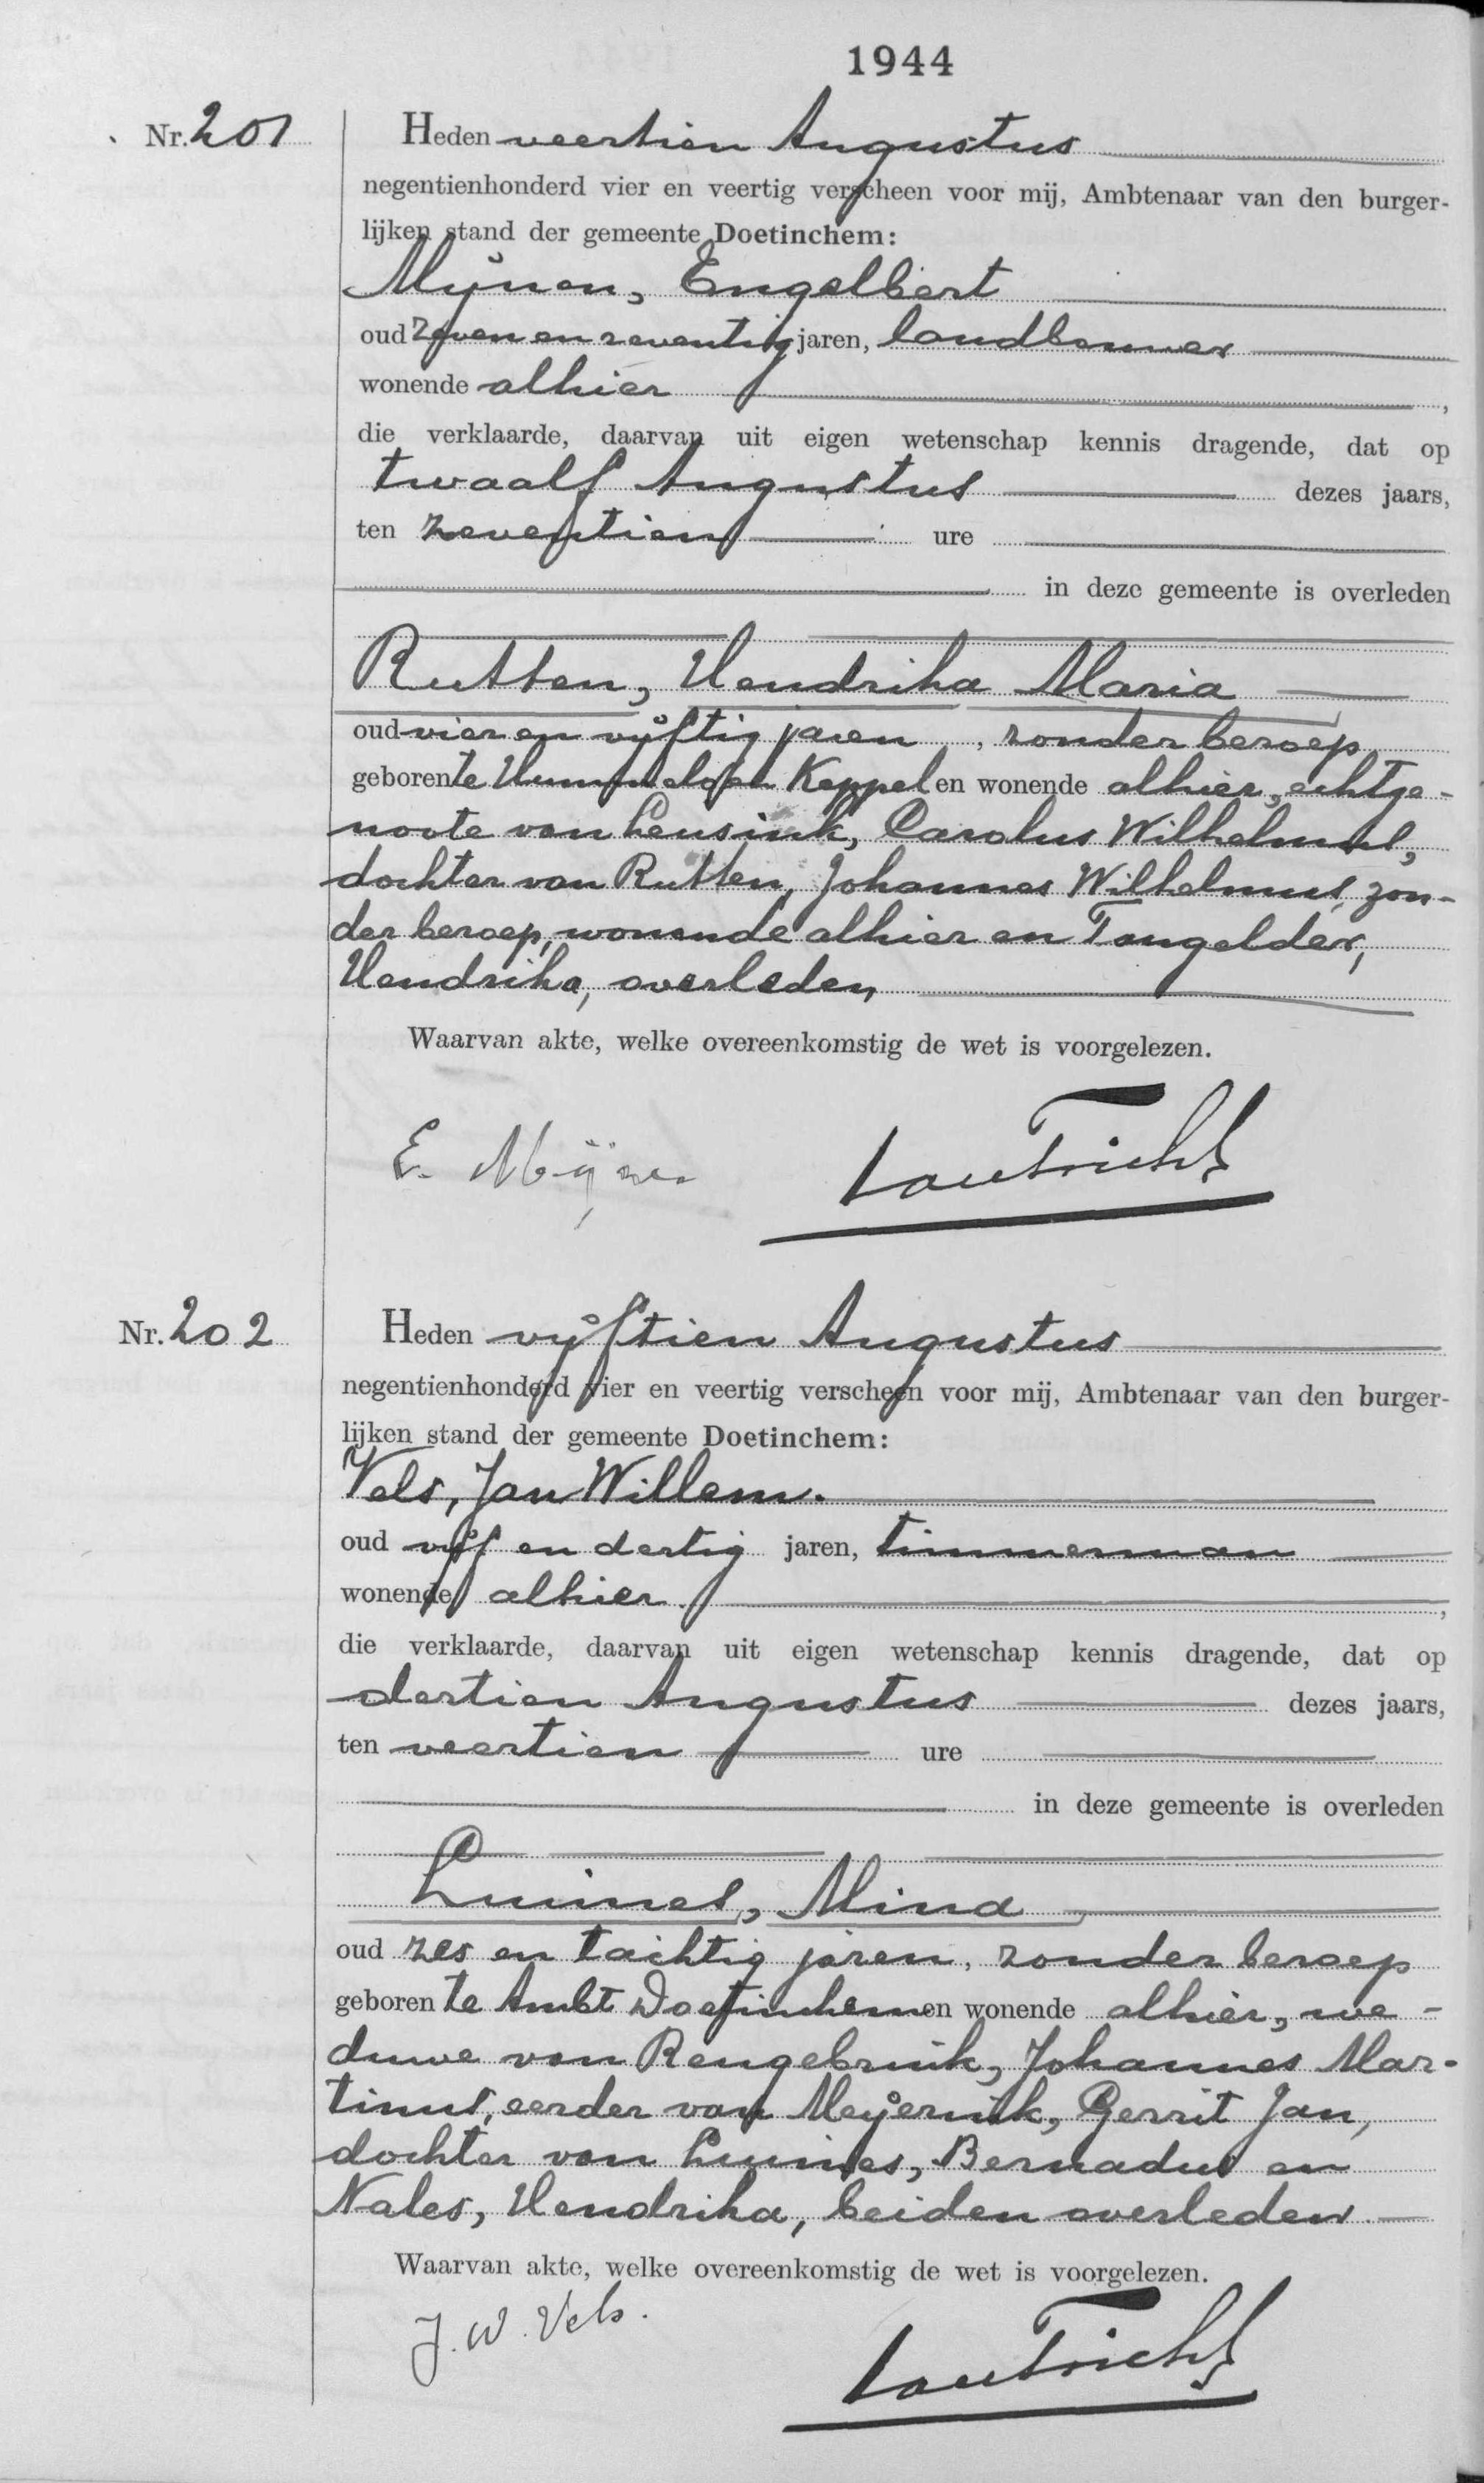 1944
Nr. 201
Heden veertien Augustus
negentienhonderd vier en veertig verscheen voor mij, Ambtenaar van den burger-
lijken stand der gemeente Doetinchem:
Mijnen, Engelbert
oud zeven en zeventig jaren, landbouwer
wonende alhier,
die verklaarde, daarvan uit eigen wetenschap kennis dragende, dat op
twaalf Augustus dezes jaars,
ten zeventien ure
in deze gemeente is overleden
Rutten, Hendrika Maria
oud vier en vijftig jaren, zonder beroep
geboren te Hummelo en Keppel en wonende alhier, echtge-
noote van Lensink, Carolus Wilhelmus,
dochter van Rutten, Johannes Wilhelmus, zon-
der beroep, wonende alhier en Tangelder,
Hendrika, overleden
Waarvan akte, welke overeenkomstig de wet is voorgelezen.
E. Mijnen
Nr. 202
Heden vijftien Augustus
negentienhonderd vier en veertig verscheen voor mij, Ambtenaar van den burger-
lijken stand der gemeente Doetinchem:
Vels, Jan Willem.
oud vijf en dertig jaren, timmerman
wonende alhier.,
die verklaarde, daarvan uit eigen wetenschap kennis dragende, dat op
dertien Augustus dezes jaars,
ten veertien ure
in deze gemeente is overleden
Luimes, Mina
oud zes en tachtig jaren, zonder beroep
geboren te Ambt Doetinchem en wonende alhier, we-
duwe van Rengelink, Johannes Mar-
tinus, eerder van Meijerink, Gerrit Jan,
dochter van Luimes, Bernadus en
Nales, Hendrika, beiden overleden.
Waarvan akte, welke overeenkomstig de wet is voorgelezen.
J. W. Vels.